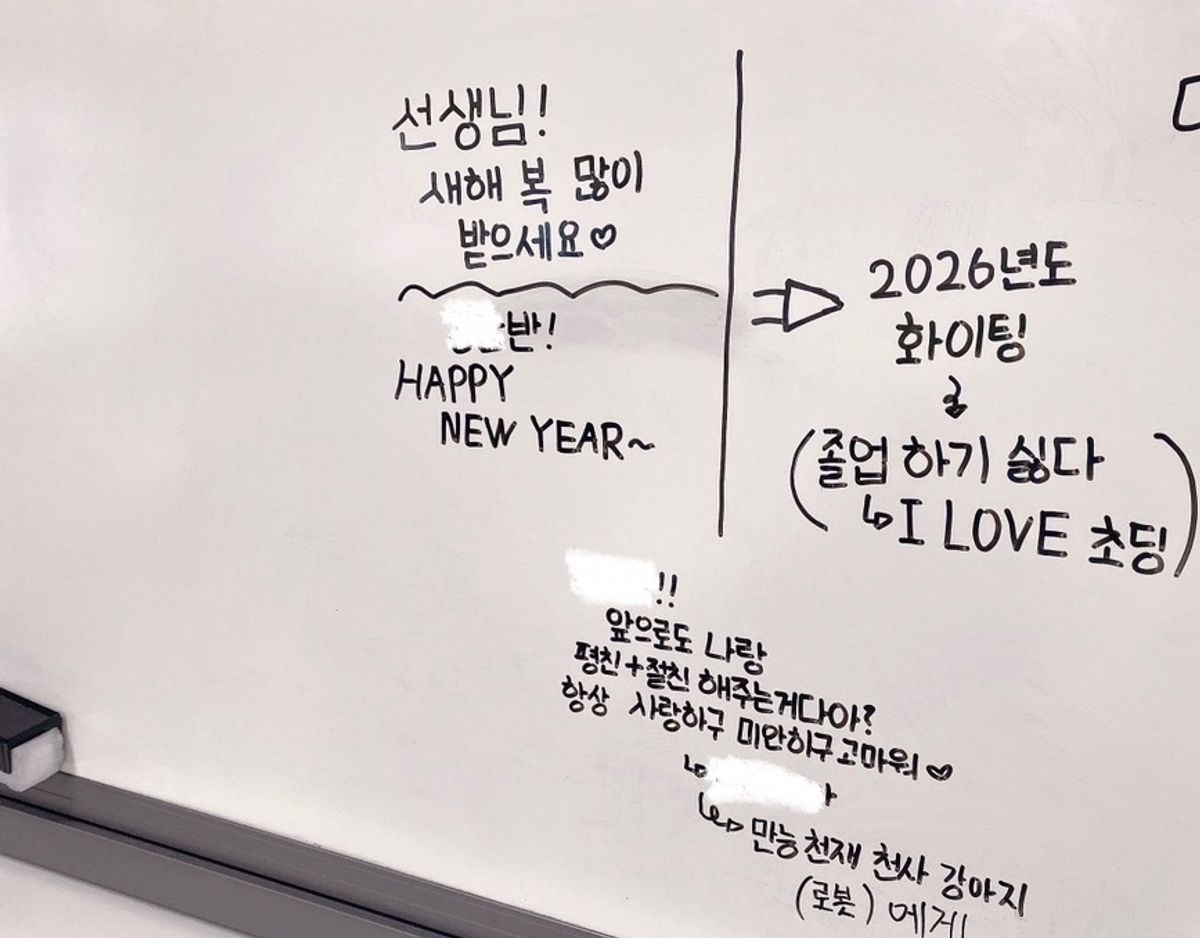 선생님!
새해 복 많이
받으세요♡
반!
HAPPY
NEW YEAR~
2026년도
화이팅
(졸업 하기 싫다
↳I LOVE 초딩)
!!
앞으로도 나랑
평친+절친 해주는거다아?
항상 사랑하구 미안하구 고마워♡
↳
↳ 만능 천재 천사 강아지
(로봇) 에게